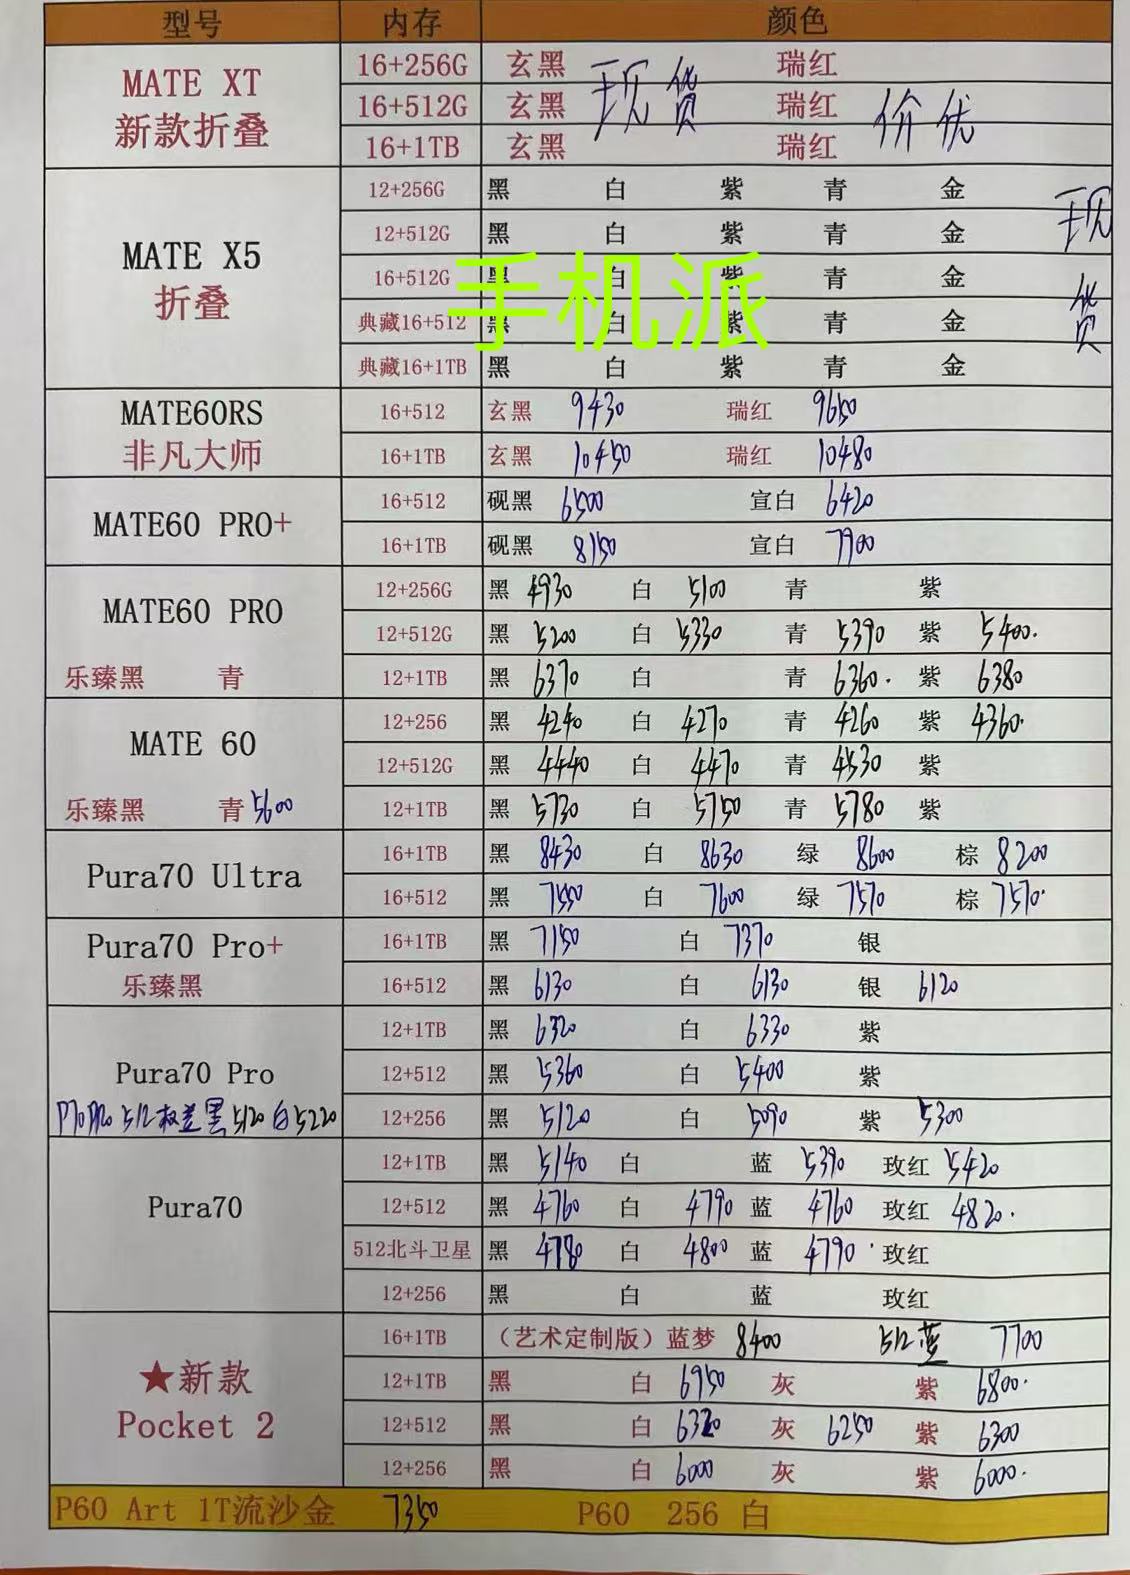 型号 内存 颜色
MATE XT 新款折叠 16+256G 玄黑 瑞红
16+512G 玄黑 现货 瑞红 价优
16+1TB 玄黑 瑞红
MATE X5 折叠 12+256G 黑 白 紫 青 金 现货
12+512G 黑 白 紫 青 金
16+512G 黑 白 紫 青 金
手机派
典藏16+512 黑 白 紫 青 金
典藏16+1TB 黑 白 紫 青 金
MATE60RS 非凡大师 16+512 玄黑 9430 瑞红 9650
16+1TB 玄黑 10450 瑞红 10480
MATE60 PRO+ 16+512 砚黑 6500 宣白 6420
16+1TB 砚黑 8150 宣白 7900
MATE60 PRO 12+256G 黑 4930 白 5100 青 紫
12+512G 黑 5200 白 5330 青 5390 紫 5400.
乐臻黑 青 12+1TB 黑 6370 白 青 6360. 紫 6380
MATE 60 12+256 黑 4240 白 4270 青 4260 紫 4360.
12+512G 黑 4440 白 4470 青 4530 紫
乐臻黑 青 5600 12+1TB 黑 5730 白 5750 青 5780 紫
Pura70 Ultra 16+1TB 黑 8430 白 8630 绿 8600 棕 8200
16+512 黑 7550 白 7600 绿 7570 棕 7570.
Pura70 Pro+ 16+1TB 黑 7150 白 7370 银
乐臻黑 16+512 黑 6130 白 6130 银 6120
Pura70 Pro 12+1TB 黑 6320 白 6330 紫
12+512 黑 5360 白 5400 紫
512 黑 5120 白 5220 12+256 黑 5120 白 5090 紫 5300
Pura70 12+1TB 黑 5140 白 蓝 5390 玫红 5420
12+512 黑 4760 白 4790 蓝 4760 玫红 4820.
512北斗卫星 黑 4780 白 4800 蓝 4790. 玫红
12+256 黑 白 蓝 玫红
★新款 Pocket 2 16+1TB （艺术定制版）蓝梦 8400 512蓝 7700
12+1TB 黑 白 6950 灰 紫 6800.
12+512 黑 白 6320 灰 6250 紫 6300
12+256 黑 白 6000 灰 紫 6000.
P60 Art 1T流沙金 7350 P60 256 白